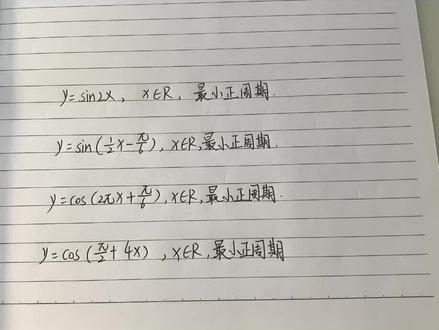 y=sin2x, x∈R, 最小正周期.
y=sin(\frac{1}{2}x-\frac{π}{6}), x∈R,最小正周期.
y=cos(2πx+\frac{π}{6}), x∈R,最小正周期.
y=cos(\frac{π}{2}+4x), x∈R,最小正周期